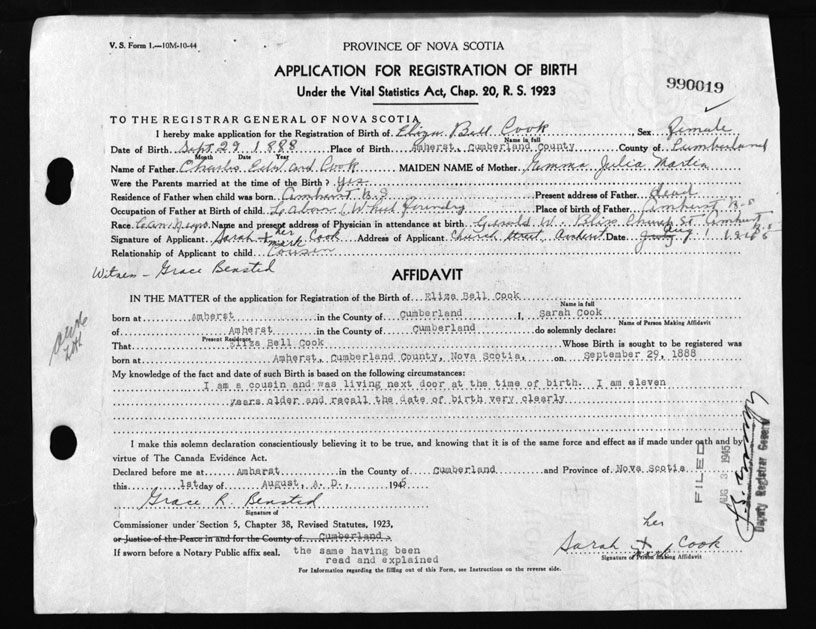 V. S. Form 1.—10M-10-44
PROVINCE OF NOVA SCOTIA
APPLICATION FOR REGISTRATION OF BIRTH
Under the Vital Statistics Act, Chap. 20, R. S. 1923
990019
TO THE REGISTRAR GENERAL OF NOVA SCOTIA
I hereby make application for the Registration of Birth of Eliza Bell Cook Sex Female
Name in full
Date of Birth Sept 29 1888 Place of Birth Amherst, Cumberland County County of Cumberland
Month Date Year
Name of Father Charles Edward Cook MAIDEN NAME of Mother Emma Julia Martin
Were the Parents married at the time of the Birth? Yes
Residence of Father when child was born Amherst N.S Present address of Father dead
Occupation of Father at Birth of child Labor Foundry Place of birth of Father Amherst N-S
Race Name and present address of Physician in attendance at birth Church St Amherst N-S
Signature of Applicant Sarah her mark Cook Address of Applicant Church Street, Amherst Date Aug 1
Relationship of Applicant to child Cousin
Witness - Grace Bensted
AFFIDAVIT
IN THE MATTER of the application for Registration of the Birth of Eliza Bell Cook
Name in full
born at Amherst in the County of Cumberland I, Sarah Cook
Name of Person Making Affidavit
of Amherst in the County of Cumberland do solemnly declare:
Present Residence
That Eliza Bell Cook Whose Birth is sought to be registered was
born at Amherst, Cumberland County, Nova Scotia, on September 29, 1888
My knowledge of the fact and date of such Birth is based on the following circumstances:
I am a cousin and was living next door at the time of birth. I am eleven
years older and recall the date of birth very clearly
I make this solemn declaration conscientiously believing it to be true, and knowing that it is of the same force and effect as if made under oath and by
virtue of The Canada Evidence Act.
Declared before me at Amherst in the County of Cumberland and Province of Nova Scotia
this 1st day of August, A. D., 1945
Grace R. Bensted
Signature of
Commissioner under Section 5, Chapter 38, Revised Statutes, 1923,
or Justice of the Peace in and for the County of Cumberland
If sworn before a Notary Public affix seal. the same having been
read and explained
Sarah her mark Cook
Signature of Person Making Affidavit
For Information regarding the filling out of this Form, see Instructions on the reverse side.
FILED
AUG 3 1945
Deputy Registrar General